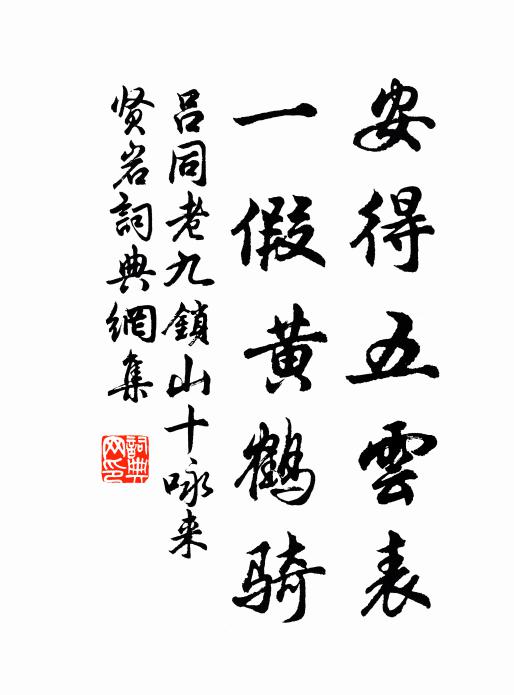 安得五雲表
一假黄鶴騎
吕同老九鎖山十咏来
贤岩詞典網集
詞典网印